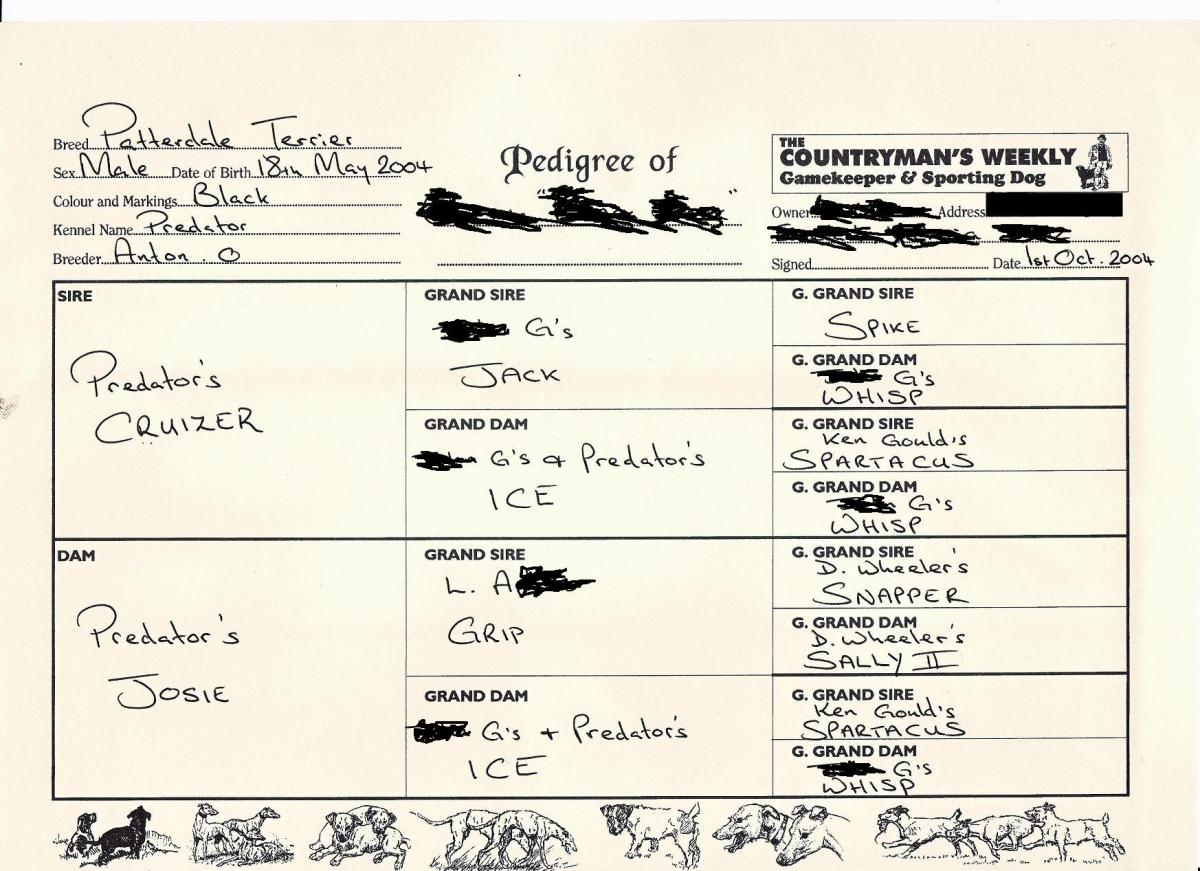 Breed Patterdale Terrier
Sex Male Date of Birth 18th May 2004
Colour and Markings Black
Kennel Name Predator
Breeder Anton. O
Pedigree of
" "
THE
COUNTRYMAN'S WEEKLY
Gamekeeper & Sporting Dog
Owner Address
Signed Date 1st Oct. 2004
SIRE
Predator's
CRUIZER
GRAND SIRE
G's
JACK
GRAND DAM
G's & Predator's
ICE
G. GRAND SIRE
SPIKE
G. GRAND DAM
G's
WHISP
G. GRAND SIRE
Ken Gould's
SPARTACUS
G. GRAND DAM
G's
WHISP
DAM
Predator's
JOSIE
GRAND SIRE
L. A
GRIP
GRAND DAM
G's + Predator's
ICE
G. GRAND SIRE
D. Wheeler's
SNAPPER
G. GRAND DAM
D. Wheeler's
SALLY II
G. GRAND SIRE
Ken Gould's
SPARTACUS
G. GRAND DAM
G's
WHISP